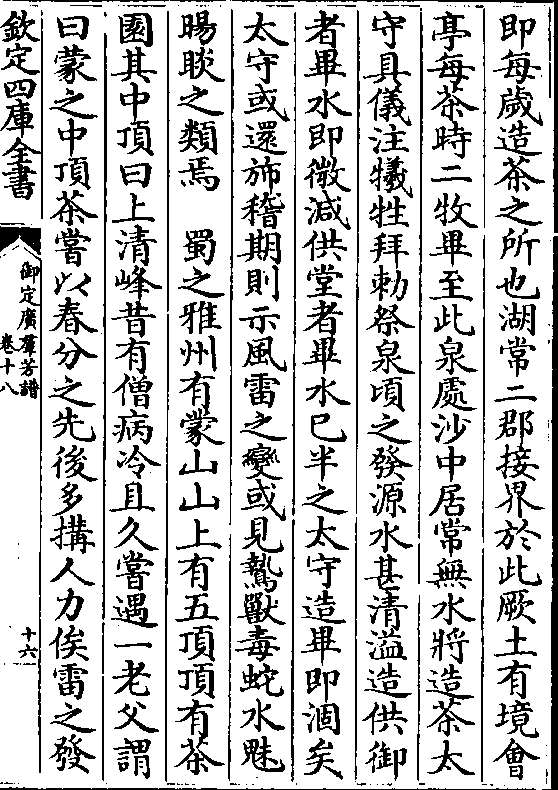 即每歲造茶之所也湖常二郡接界於此厥土有境會
亭每茶時二牧畢至此泉處沙中居常無水將造茶太
守具儀注犧牲拜勅祭泉頃之發源水甚清溢造供御
者畢水即微減供堂者畢水已半之太守造畢即涸矣
太守或還斾稽期則示風雷之變或見鷙獸毒蛇水魅
暘睒之類焉　蜀之雅州有蒙山山上有五頂頂有茶
園其中頂曰上清峰昔有僧病冷且久嘗遇一老父謂
曰蒙之中頂茶嘗以春分之先後多搆人力俟雷之發
欽定四庫全書
御定廣羣芳譜
卷十八
十六